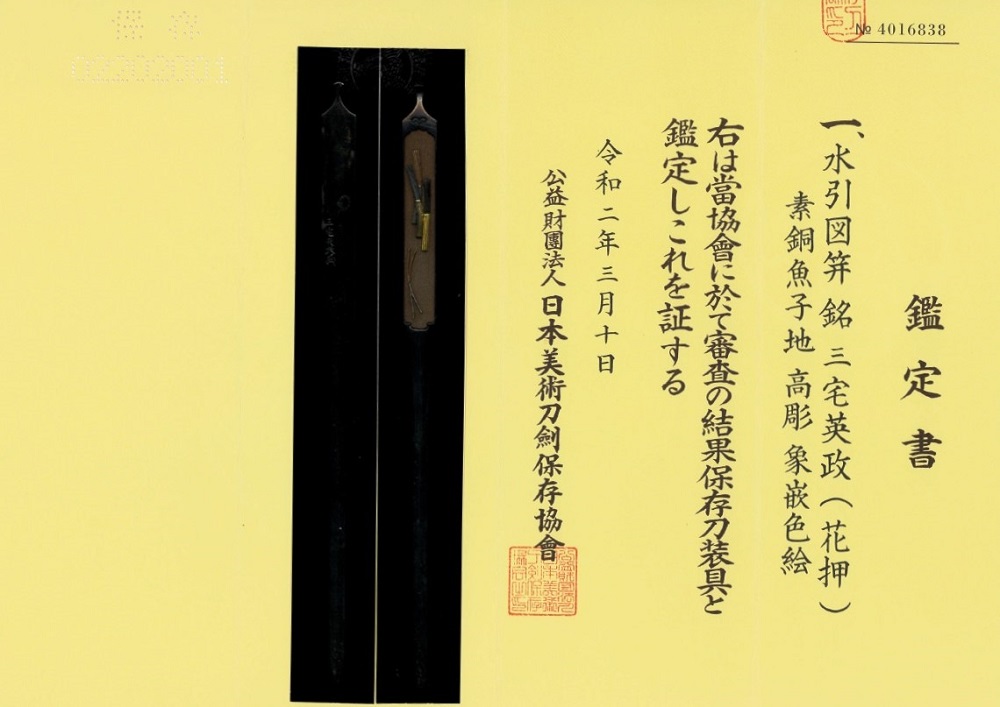 № 4016838
鑑定書
一、水引図笄 銘 三宅英政(花押)
素銅魚子地 高彫 象嵌色絵
右は當協會に於て審査の結果保存刀装具と
鑑定しこれを証する
令和二年三月十日
公益財團法人 日本美術刀劍保存協會
保存